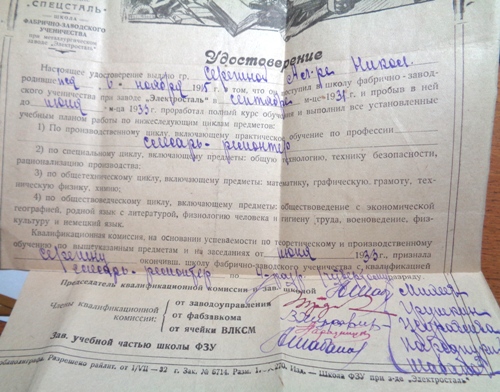 СПЕЦСТАЛЬ
ШКОЛА
ФАБРИЧНО-ЗАВОДСКОГО
УЧЕНИЧЕСТВА
при металлургическом
заводе „Электросталь"
Удостоверение
Настоящее удостоверение выдано гр. Серегиной
родившейся 6 ноября 1915 г. в том, что поступил в школу фабрично-завод-
ского ученичества при заводе „Электросталь" в сентябре м-це 1931 г. и пробыв в ней
до июня м-ца 1933 г. проработал полный курс обучения и выполнил все установленные
учебным планом работы по нижеследующим циклам предметов:
1) По производственному циклу, включающему практическое обучение по профессии
слесарь-ремонтер
2) по специальному циклу, включающему предметы: общую технологию, технику безопасности,
рационализацию производства;
3) по общетехническому циклу, включающему предметы: математику, графическую, грамоту, тех-
ническую физику, химию;
4) по обществоведческому циклу, включающему предметы: обществоведение с экономической
географией, родной язык с литературой, физиологию человека и гигиену труда, военоведение, физ-
культуру и немецкий язык.
Квалификационная комиссия, на основании успеваемости по теоретическому и производственному
обучению по вышеуказанным предметам и на заседаниях от июня 1933 г. признала
Серегину окончивш. школу фабрично-заводского ученичества с квалификацией
слесарь-ремонтер по разряду
Председатель квалификационной комиссии и зав. школой
Члены квалификационной
комиссии:
от заводоуправления
от фабзавкома
от ячейки ВЛКСМ
Зав. учебной частью школы ФЗУ
Разрешена райлит. от 1/VII—32 г. Зак. № 6714. Изд.—Школа ФЗУ при з-де „Электросталь"